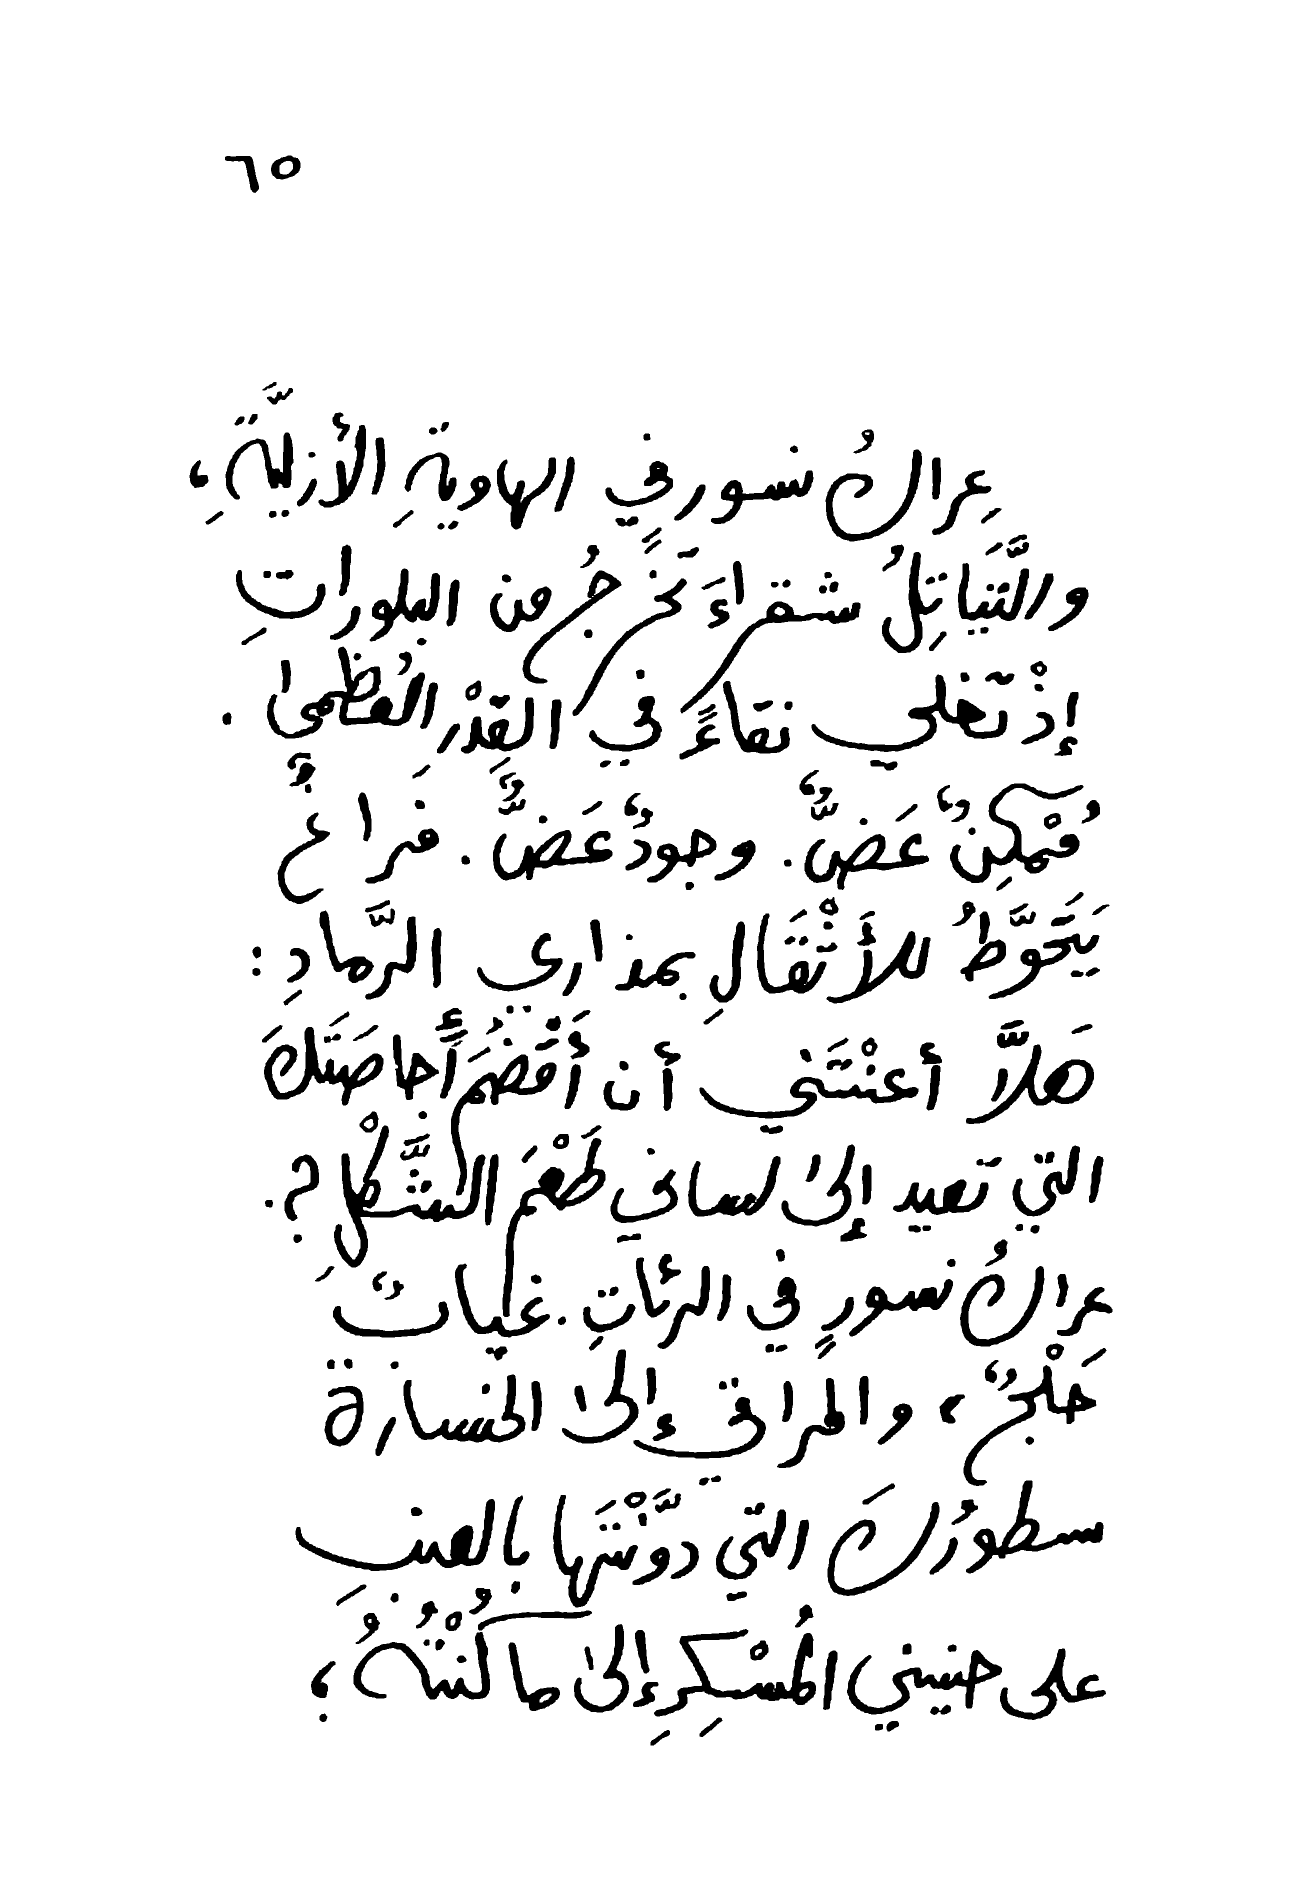 ٦٥
عِراكُ نسورٍ في الهاويةِ الأزليَّةِ،
والتَّنَياتِلُ شقراءَ تخرجُ من البلوراتِ
إذْ تَغلي نقاءً في القِدْرِ العُظمىٰ .
مُمْكِنٌ غَضٌّ . وجودٌ غَضٌّ . فَراغٌ
يَتَحَوَّطُ للأَثْقَالِ بمذاري الرَّمادِ :
هَلَّا أعنْتَني أن أَقْضُمَ أُجاصَتَكَ
التي تعيد إلىٰ لساني طَعْمَ الشَّكْلِ؟ .
عراكُ نسورٍ في الرئاتِ . غيابٌ
خَلْجٌ، والمراقي إلىٰ الخسارة
سطورُكَ التي دوَّنْتَها بالعنبِ
على حنيني المُسْكِرِ إلىٰ ما كُنْتُهُ ؛